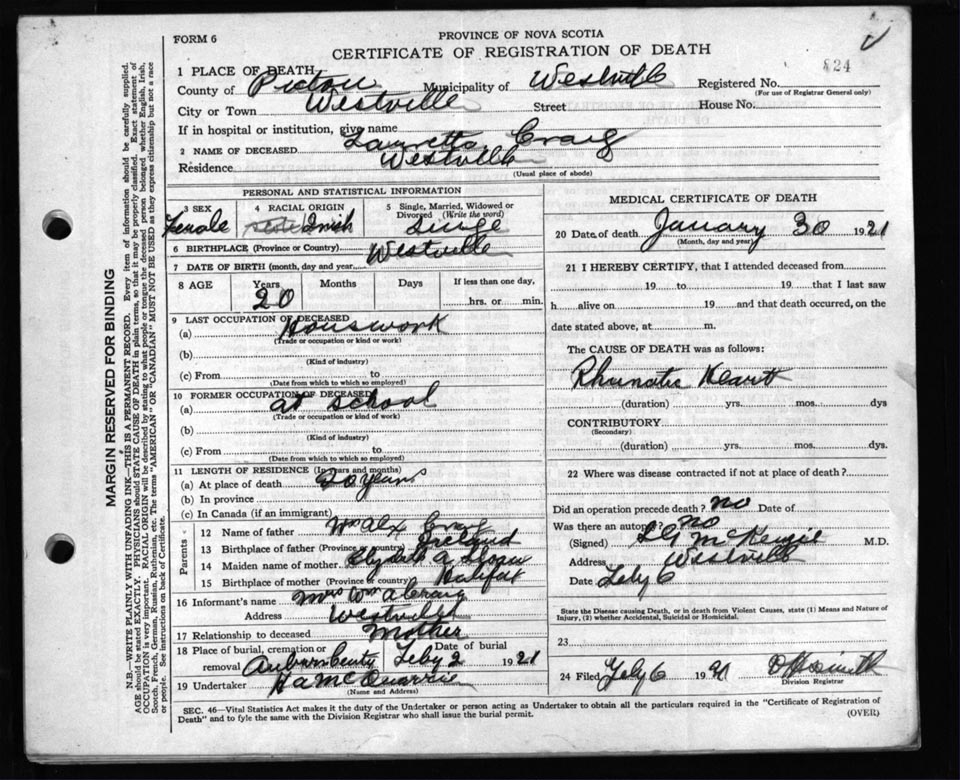 FORM 6
PROVINCE OF NOVA SCOTIA
CERTIFICATE OF REGISTRATION OF DEATH
824
1 PLACE OF DEATH
County of Pictou Municipality of Westville Registered No.
(For use of Registrar General only)
City or Town Westville Street House No.
If in hospital or institution, give name
2 NAME OF DECEASED Lauretta Craig
Residence Westville
(Usual place of abode)
PERSONAL AND STATISTICAL INFORMATION
3 SEX Female
4 RACIAL ORIGIN Irish
5 Single, Married, Widowed or Divorced (Write the word) Single
6 BIRTHPLACE (Province or Country) Westville
7 DATE OF BIRTH (month, day and year)
8 AGE Years 20 Months Days If less than one day, hrs. or min.
9 LAST OCCUPATION OF DECEASED
(a) Houswork
(Trade or occupation or kind or work)
(b)
(Kind of industry)
(c) From to
(Date from which to which so employed)
10 FORMER OCCUPATION OF DECEASED
(a) at school
(Trade or occupation or kind of work)
(b)
(Kind of industry)
(c) From to
(Date from which to which so employed)
11 LENGTH OF RESIDENCE (In years and months)
(a) At place of death 20 years
(b) In province
(c) In Canada (if an immigrant)
Parents
12 Name of father Wm Alex Craig
13 Birthplace of father (Province or country) Ireland
14 Maiden name of mother A Sloan
15 Birthplace of mother (Province or country) Halifax
16 Informant's name Mrs Wm A Craig
Address Westville
17 Relationship to deceased Mother
18 Place of burial, cremation or removal Auburn Cemty Date of burial Feby 2 1921
19 Undertaker Ha McQuarrie
(Name and Address)
MEDICAL CERTIFICATE OF DEATH
20 Date of death January 30 1921
(Month, day and year)
21 I HEREBY CERTIFY, that I attended deceased from
19 to 19 that I last saw
h alive on 19 and that death occurred, on the
date stated above, at m.
The CAUSE OF DEATH was as follows:
Rhumatic Heart
(duration) yrs. mos. dys
CONTRIBUTORY
(Secondary)
(duration) yrs. mos. dys.
22 Where was disease contracted if not at place of death?
Did an operation precede death? no Date of
Was there an autopsy no
(Signed) McKenzie M.D.
Address Westville
Date Feby 6
State the Disease causing Death, or in death from Violent Causes, state (1) Means and Nature of
Injury, (2) whether Accidental, Suicidal or Homicidal.
23
24 Filed Feby 6 1921
Division Registrar
SEC. 46—Vital Statistics Act makes it the duty of the Undertaker or person acting as Undertaker to obtain all the particulars required in the "Certificate of Registration of
Death" and to fyle the same with the Division Registrar who shall issue the burial permit.
(OVER)
MARGIN RESERVED FOR BINDING
N.B.—WRITE PLAINLY WITH UNFADING INK—THIS IS A PERMANENT RECORD. Every item of information should be carefully supplied.
AGE should be stated EXACTLY. PHYSICIANS should STATE CAUSE OF DEATH in plain terms, so that it may be properly classified. Exact statement of
OCCUPATION is very important. RACIAL ORIGIN will be described by stating to what people or tongue the deceased person belonged whether English, Irish,
Scotch, French, German, Russian, Ruthenian, etc. The terms "AMERICAN" or "CANADIAN" MUST NOT BE USED as they express citizenship but not a race
or people. See instructions on back of Certificate.